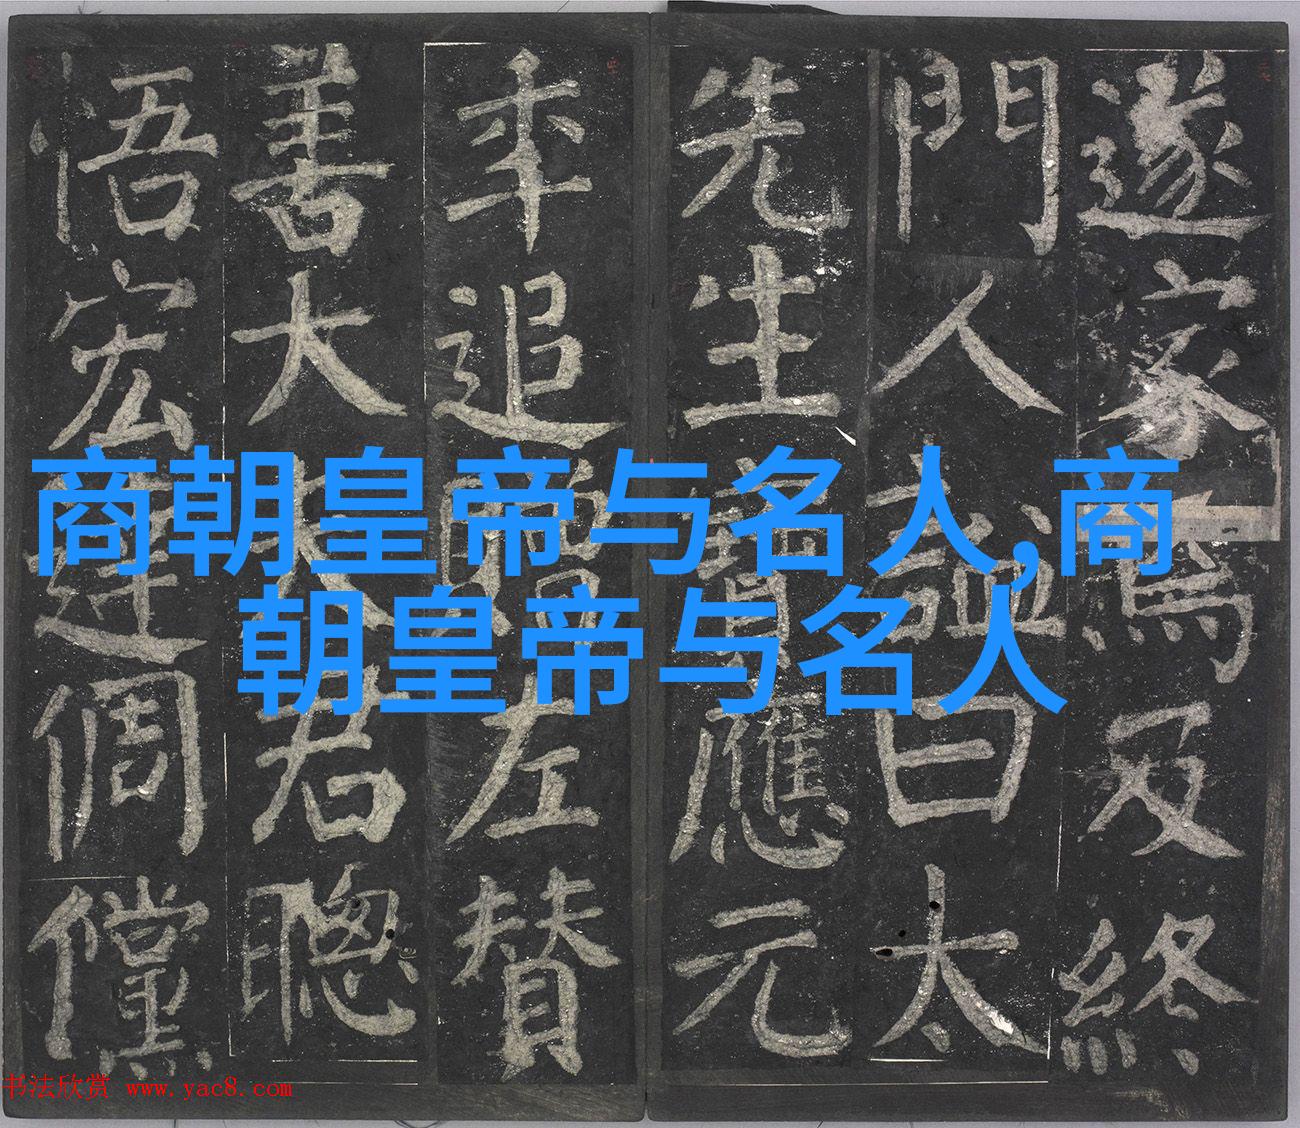 遂家焉及終
門人謚曰太
先生寶應元
年追贈左贊
善大夫君聰
悟宏達倜儻
商朝皇帝与名人,商
朝皇帝与名人
书法欣赏 www.yac8.com